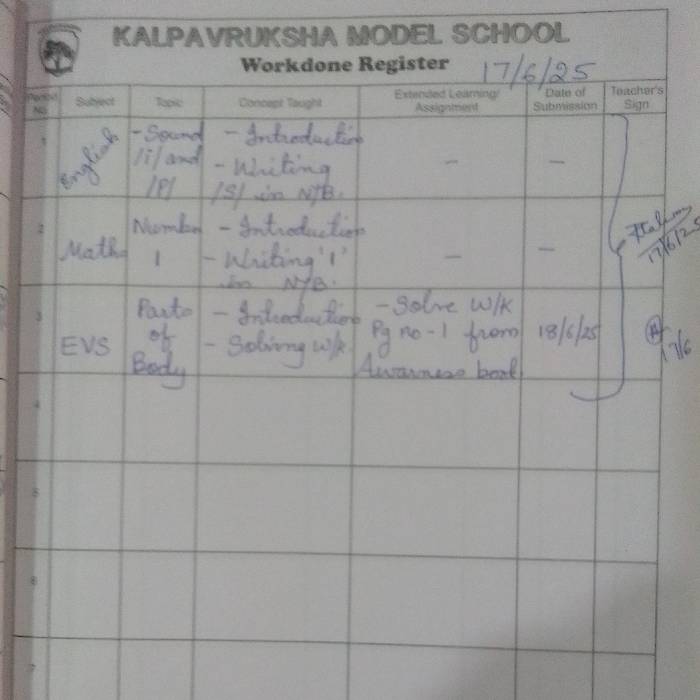 KALPAVRUKSHA MODEL SCHOOL
Workdone Register
17/6/25
Period No
Subject
Topic
Concept Taught
Extended Learning/
Assignment
Date of
Submission
Teacher's
Sign
1
English
- Sound
/i/ and
/P/
- Introduction
- Writing
/S/ in N/B.
-
-
2
Maths
Number
1
- Introduction
- Writing '1'
in N/B.
-
-
17/6/25
3
EVS
Parts
of
Body
- Introduction
- Solving W/k.
- Solve W/k
Pg no - 1 from
Awarness book
18/6/25
17/6
4
5
6
7